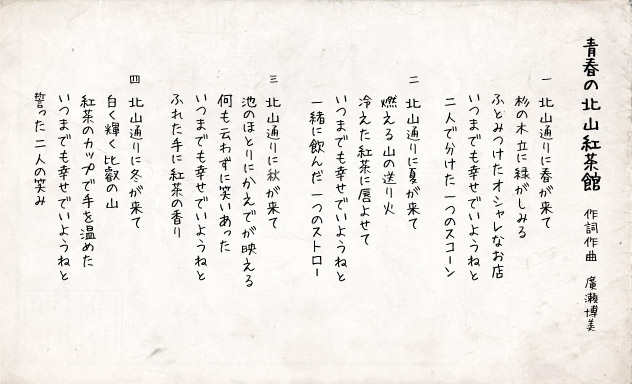 青春の北山紅茶館 作詞作曲 廣瀬博美
一 北山通りに春が来て
杉の木立に緑がしみる
ふとみつけたオシャレなお店
いつまでも幸せでいようねと
二人で分けた一つのスコーン
二 北山通りに夏が来て
燃える山の送り火
冷えた紅茶に唇よせて
いつまでも幸せでいようねと
一緒に飲んだ一つのストロー
三 北山通りに秋が来て
池のほとりにかえでが映える
何も云わずに笑いあった
いつまでも幸せでいようねと
ふれた手に紅茶の香り
四 北山通りに冬が来て
白く輝く比叡の山
紅茶のカップで手を温めた
いつまでも幸せでいようねと
誓った二人の笑み